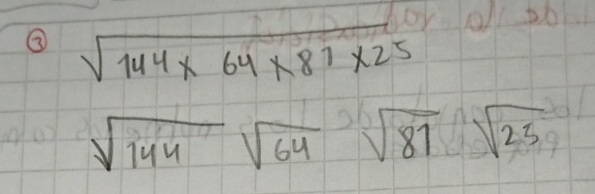 ③ √144 × 64 × 81 × 25
√144 √64 √81 √25